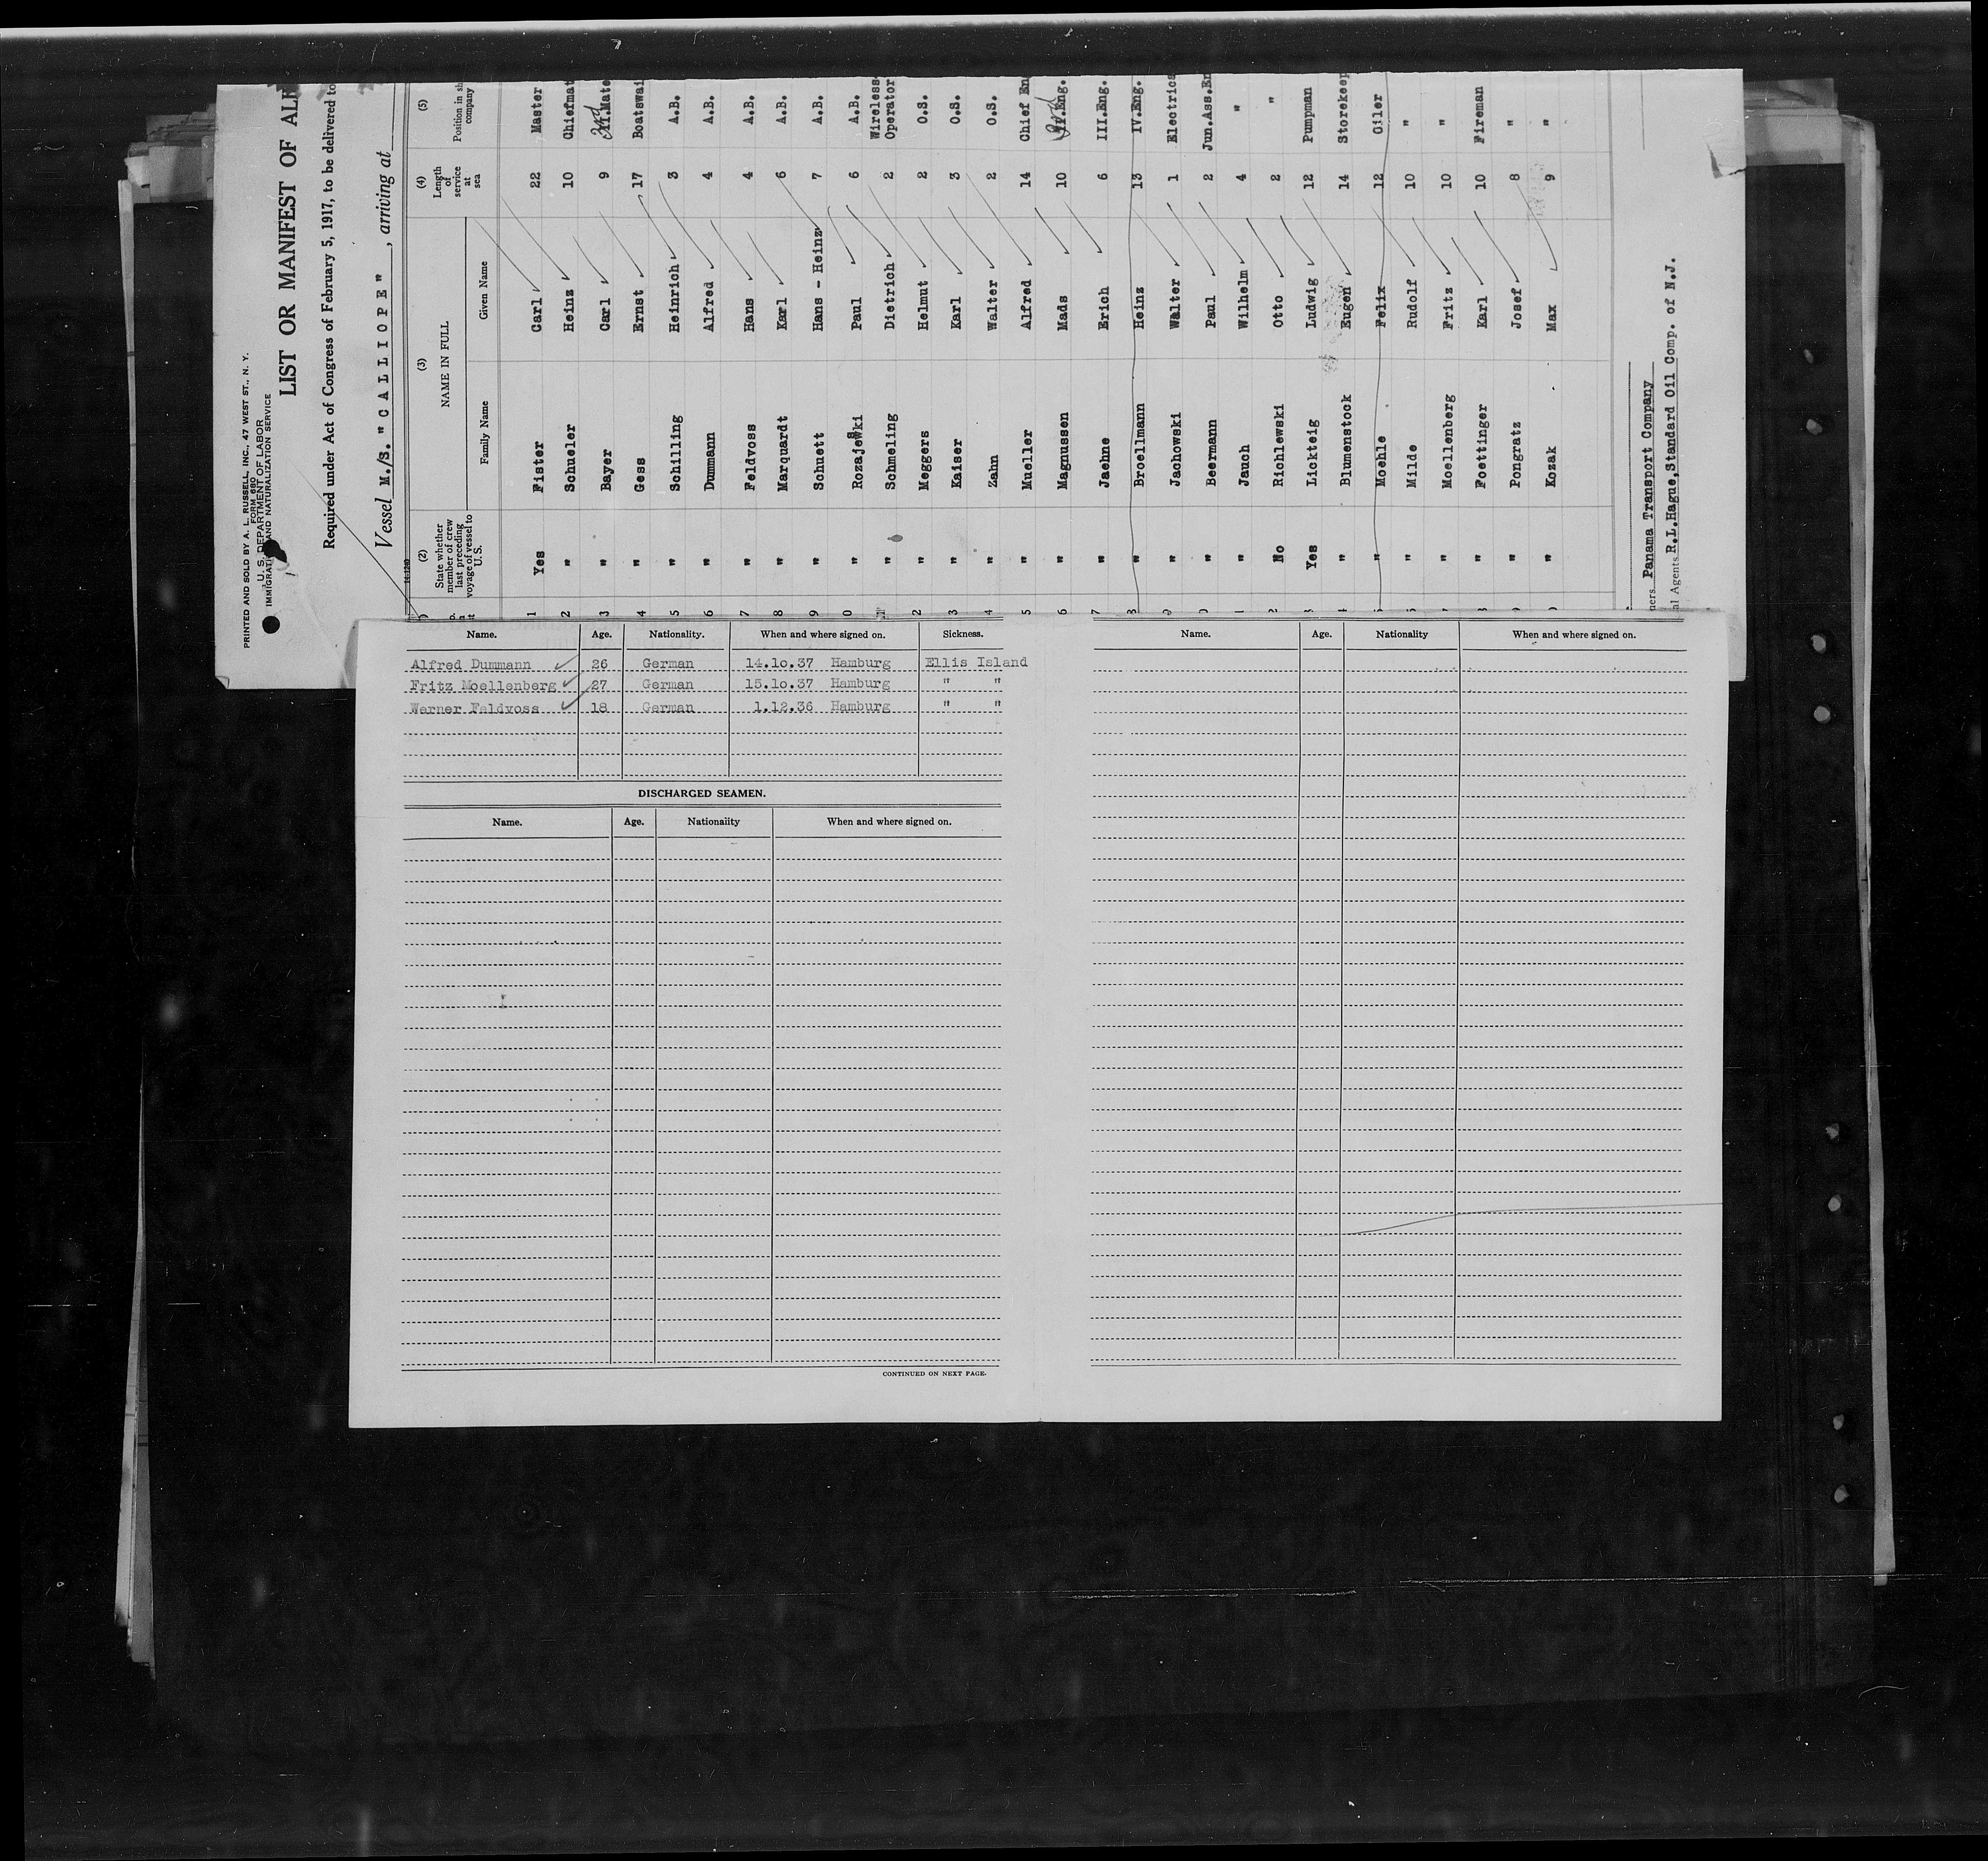 PRINTED AND SOLD BY A. L. RUSSELL, INC., 47 WEST ST., N. Y.
FORM 680
U. S. DEPARTMENT OF LABOR
IMMIGRATION AND NATURALIZATION SERVICE
LIST OR MANIFEST OF
Required under Act of Congress of February 5, 1917, to be delivered to
Vessel M./S. "CALLIOPE", arriving at
(2) (3) (4) (5)
State whether member of crew last preceding voyage of vessel to U.S. NAME IN FULL Length of service at sea Position in
Family Name Given Name company
1 Yes Fister Carl 22 Master
2 " Schueler Heinz 10 Chiefmat
3 " Bayer Carl 9 Mate
4 " Gess Ernst 17 Boatswai
5 " Schilling Heinrich 3 A.B.
6 " Dummann Alfred 4 A.B.
7 " Feldvoss Hans 4 A.B.
8 " Marquardt Karl 6 A.B.
9 " Schuett Hans - Heinz 7 A.B.
0 " Rozajewski Paul 6 A.B.
" Schmeling Dietrich 2 Wireless Operator
2 " Meggers Helmut 2 O.S.
3 " Kaiser Karl 3 O.S.
4 " Zahn Walter 2 O.S.
5 " Mueller Alfred 14 Chief En
6 " Magnussen Mads 10 Eng.
7 " Jaehne Erich 6 III.Eng.
8 " Broellmann Heinz 13 IV.Eng.
9 " Jachowski Walter 1 Electrica
0 " Beermann Paul 2 Jun.Ass.En
1 " Jauch Wilhelm 4 "
2 No Richlewski Otto 2 "
3 Yes Lickteig Ludwig 12 Pumpman
4 " Blumenstock Eugen 14 Storekeep
5 " Moehle Felix 12 Oiler
" Milde Rudolf 10 "
7 " Moellenberg Fritz 10 "
8 " Poettinger Karl 10 Fireman
" Pongratz Josef 8 "
" Kozak Max 9 "
ners Panama Transport Company
al Agents R.L.Hague,Standard Oil Comp. of N.J.
Name. Age. Nationality. When and where signed on. Sickness.
Alfred Dummann 26 German 14.10.37 Hamburg Ellis Island
Fritz Moellenberg 27 German 15.10.37 Hamburg " "
Werner Feldvoss 18 German 1.12.36 Hamburg " "
DISCHARGED SEAMEN.
Name. Age. Nationality When and where signed on.
CONTINUED ON NEXT PAGE.
Name. Age. Nationality When and where signed on.